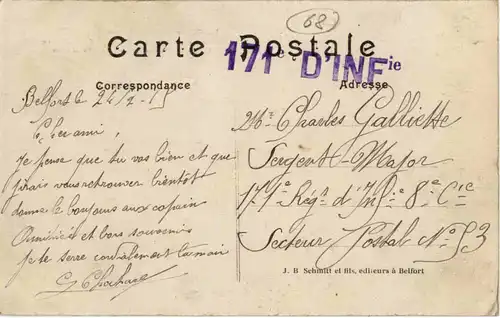 68
Carte Postale
171e D'INFie
Correspondance
Adresse
Belfort le 24/2-15
Cher ami,
Je pense que tu vas bien et que
j'irais vous retrouver bientôt
donne le bonjour aux copain
Amitiés et bons souvenirs
je te serre cordialement la main
Mr Charles Galliette
Sergent-Major
171e Régt d'Infie 8e Cie
Secteur Postal No 53
J. B Schmitt et fils, éditeurs à Belfort